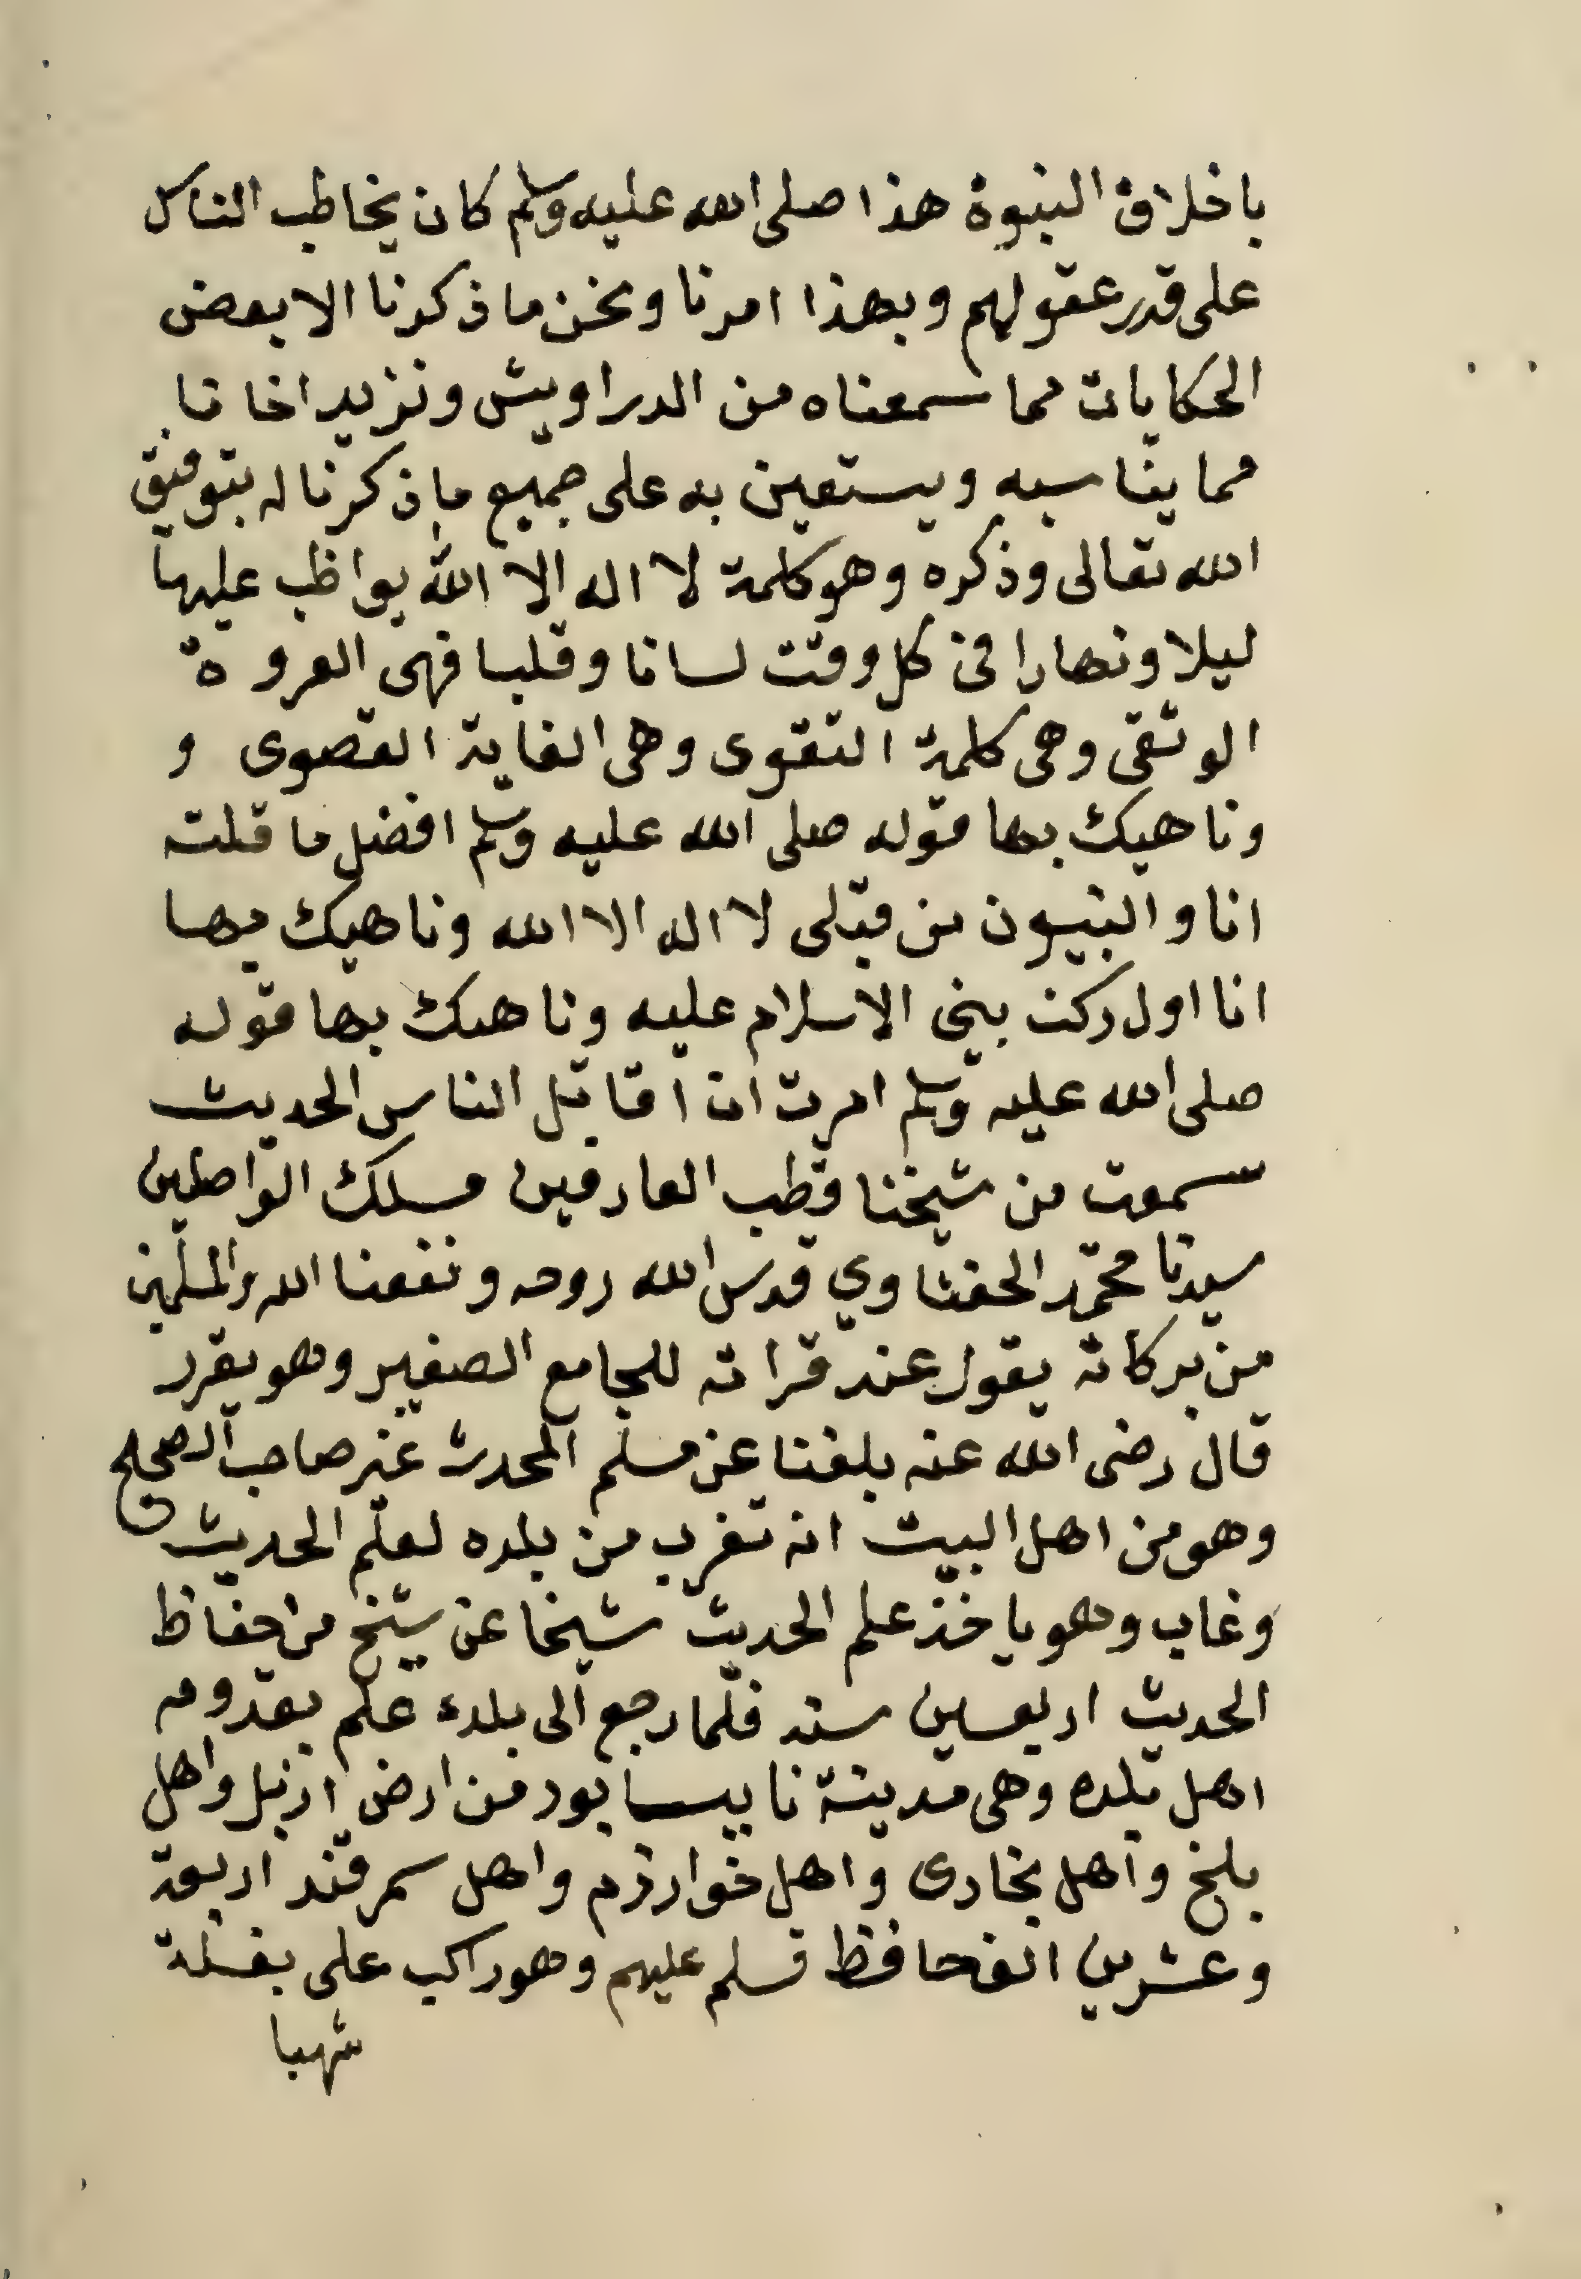 باخلاق النبوة هذا صلى الله عليه وسلم كان يخاطب الناس
على قدر عقولهم وبهذا امرنا ونحن ما ذكرنا الا بعض
الحكايات مما سمعناه من الدراويش ونزيد اخانا
مما يناسبه ويستعين به على جميع ما ذكرنا له بتوفيق
الله تعالى وذكره وهو كلمة لا اله الا الله يواظب عليها
ليلا ونهارا في كل وقت لسانا وقلبا فهى العروة
الوثقى وهى كلمة التقوى وهى الغاية القصوى و
وناهيك بها قوله صلى الله عليه وسلم افضل ما قلته
انا والنبيون من قبلى لا اله الا الله وناهيك بها
انا اول ركن بنى الاسلام عليه وناهيك بها قوله
صلى الله عليه وسلم امرت ان اقاتل الناس الحديث
سمعت من شيخنا قطب العارفين مسلك الواصلين
سيدنا محمد الحفناوي قدس الله روحه ونفعنا الله والمسلمين
من بركاته يقول عند قراته للجامع الصغير وهو يقرر
قال رضى الله عنه بلغنا عن مسلم المحدث غير صاحب الصحيح
وهو من اهل البيت انه تغرب من بلده لعلم الحديث
وغاب وهو ياخذ علم الحديث شيخا عن شيخ من حفاظ
الحديث اربعين سنه فلما رجع الى بلده علم بقدومه
اهل بلده وهى مدينة نايسابور من ارض ازبل واهل
بلخ واهل بخارى واهل خوارزم واهل سمرقند اربعة
وعشرين الف حافظ فسلم عليهم وهو راكب على بغلة
شهبا